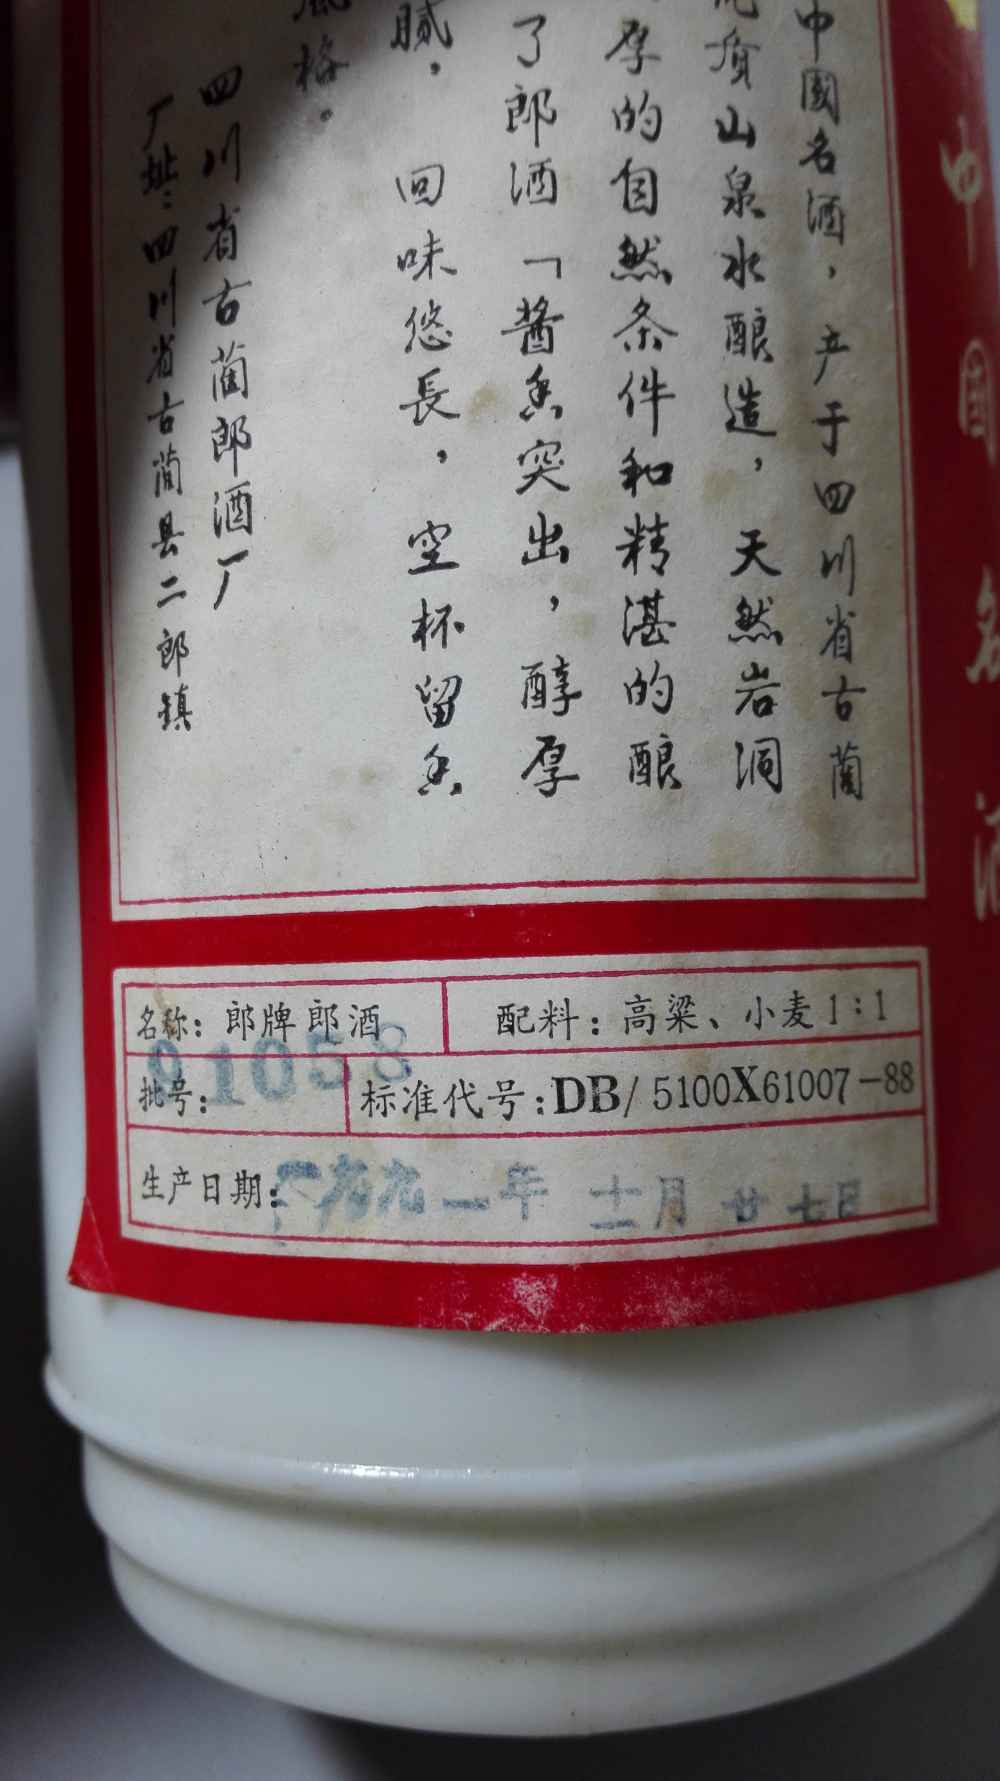 中國名酒，产于四川省古蔺
质山泉水酿造，天然岩洞
厚的自然条件和精湛的酿
了郎酒「酱香突出，醇厚
腻，回味悠長，空杯留香
格。
四川省古蔺郎酒厂
厂址：四川省古蔺县二郎镇
中国名酒
名称：郎牌郎酒
配料：高粱、小麦1：1
批号：
91058
标准代号：DB/5100X61007-88
生产日期：一九九一年 十二月 廿七日